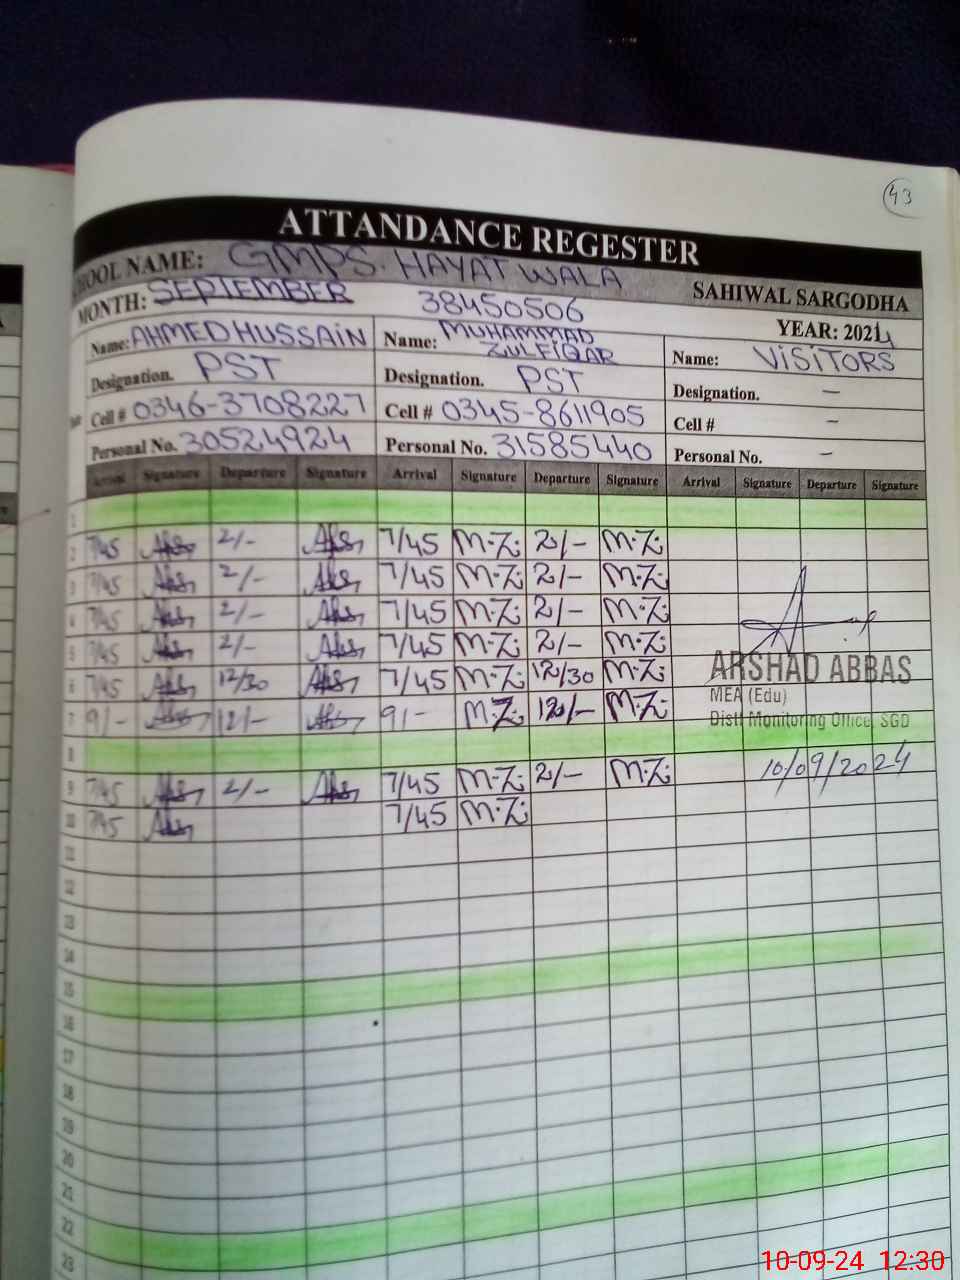 43
ATTANDANCE REGESTER
OOL NAME: GMPS. HAYAT WALA
SAHIWAL SARGODHA
MONTH: SEPTEMBER 38450506
YEAR: 2024
Name: AHMED HUSSAIN Name: MUHAMMAD ZULFIQAR Name: VISITORS
Designation. PST Designation. PST Designation. —
Cell # 0346-3708227 Cell # 0345-8611905 Cell # —
Personal No. 30524924 Personal No. 31585440 Personal No. —
Arrival Signature Departure Signature Arrival Signature Departure Signature Arrival Signature Departure Signature
1
2 7/45 2/- 7/45 M.Z: 2/- M.Z:
3 7/45 2/- 7/45 M.Z: 2/- M.Z:
4 7/45 2/- 7/45 M.Z: 2/- M.Z:
5 7/45 2/- 7/45 M.Z: 2/- M.Z:
6 7/45 12/30 7/45 M.Z: 12/30 M.Z:
7 9/- 12/- 9/- M.Z: 12/- M.Z:
ARSHAD ABBAS
MEA (Edu)
Distt Monitoring Office, SGD
8
9 7/45 2/- 7/45 M.Z: 2/- M.Z: 10/09/2024
10 7/45 7/45 M.Z:
11
12
13
14
15
16
17
18
19
20
21
22
23
10-09-24 12:30